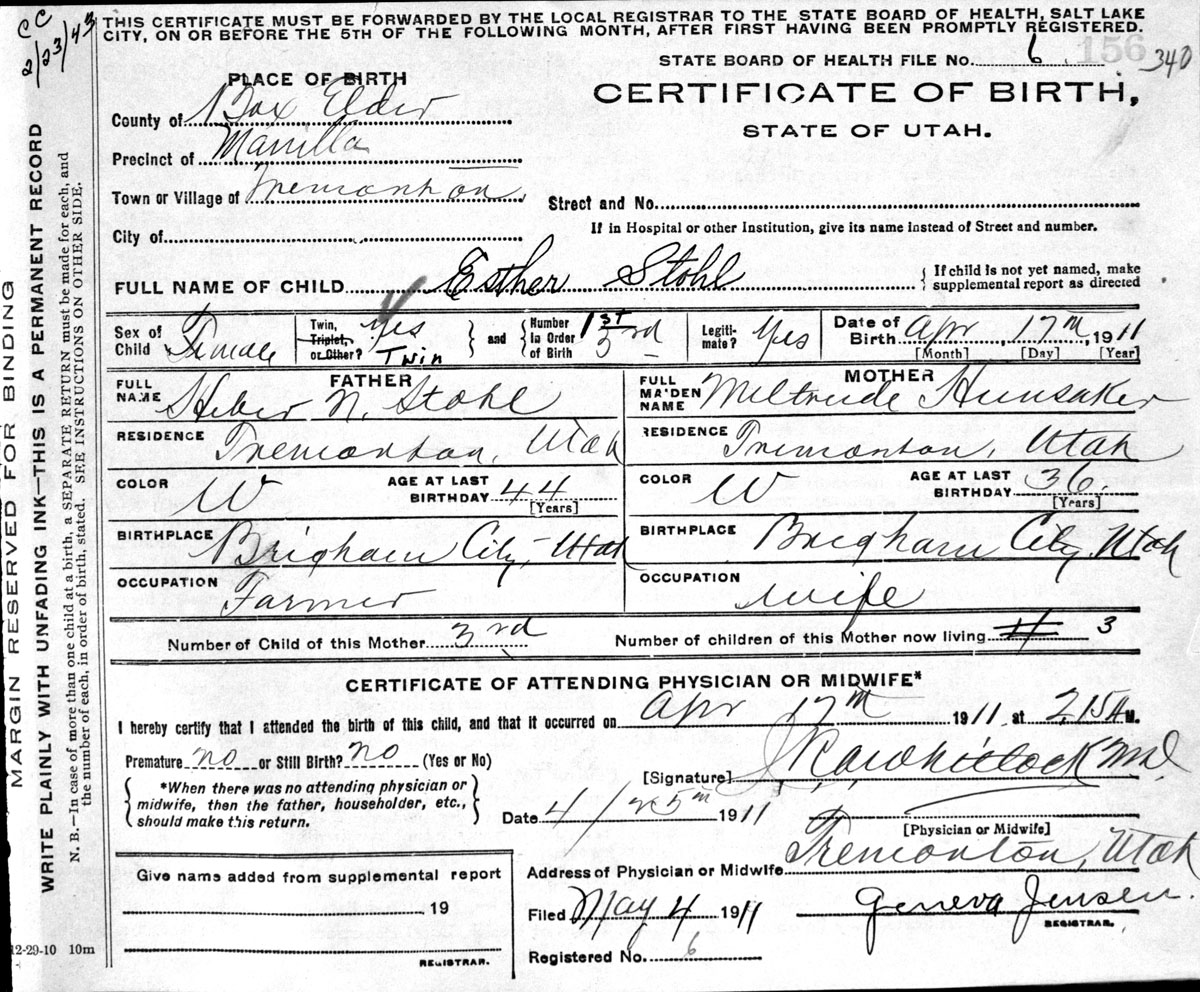 CC
2/23/43
THIS CERTIFICATE MUST BE FORWARDED BY THE LOCAL REGISTRAR TO THE STATE BOARD OF HEALTH, SALT LAKE
CITY, ON OR BEFORE THE 5TH OF THE FOLLOWING MONTH, AFTER FIRST HAVING BEEN PROMPTLY REGISTERED.
156
STATE BOARD OF HEALTH FILE No. 6 340
PLACE OF BIRTH
CERTIFICATE OF BIRTH,
STATE OF UTAH.
County of Box Elder
Precinct of Manilla
Town or Village of Tremonton
Street and No.
City of
If in Hospital or other Institution, give its name instead of Street and number.
FULL NAME OF CHILD Esther Stohl
{ If child is not yet named, make
supplemental report as directed
Sex of Child Female
Twin, Triplet, or Other? Yes Twin
and
Number In Order of Birth 1st 3rd
Legiti-mate? Yes
Date of Birth Apr 17th, 1911
[Month] [Day] [Year]
FATHER
FULL NAME Heber N. Stohl
RESIDENCE Tremonton, Utah
COLOR W AGE AT LAST BIRTHDAY 44 [Years]
BIRTHPLACE Brigham City, Utah
OCCUPATION Farmer
MOTHER
FULL MAIDEN NAME Meltrude Hunsaker
RESIDENCE Tremonton, Utah
COLOR W AGE AT LAST BIRTHDAY 36 [Years]
BIRTHPLACE Brigham City, Utah
OCCUPATION wife
Number of Child of this Mother 3rd Number of children of this Mother now living 4 3
CERTIFICATE OF ATTENDING PHYSICIAN OR MIDWIFE*
I hereby certify that I attended the birth of this child, and that it occurred on Apr 17th 1911 at 2 15 A M.
Premature no or Still Birth? no (Yes or No)
[Signature] Whitlock MD.
*When there was no attending physician or
midwife, then the father, householder, etc.,
should make this return.
Date 4/25th 1911
[Physician or Midwife]
Address of Physician or Midwife Tremonton, Utah
Give name added from supplemental report
19
REGISTRAR.
Filed May 4 1911 Geneva Jensen.
REGISTRAR.
Registered No. 6
12-29-10 10m
MARGIN RESERVED FOR BINDING
WRITE PLAINLY WITH UNFADING INK—THIS IS A PERMANENT RECORD
N. B.—In case of more than one child at a birth, a SEPARATE RETURN must be made for each, and
the number of each, in order of birth, stated. SEE INSTRUCTIONS ON OTHER SIDE.